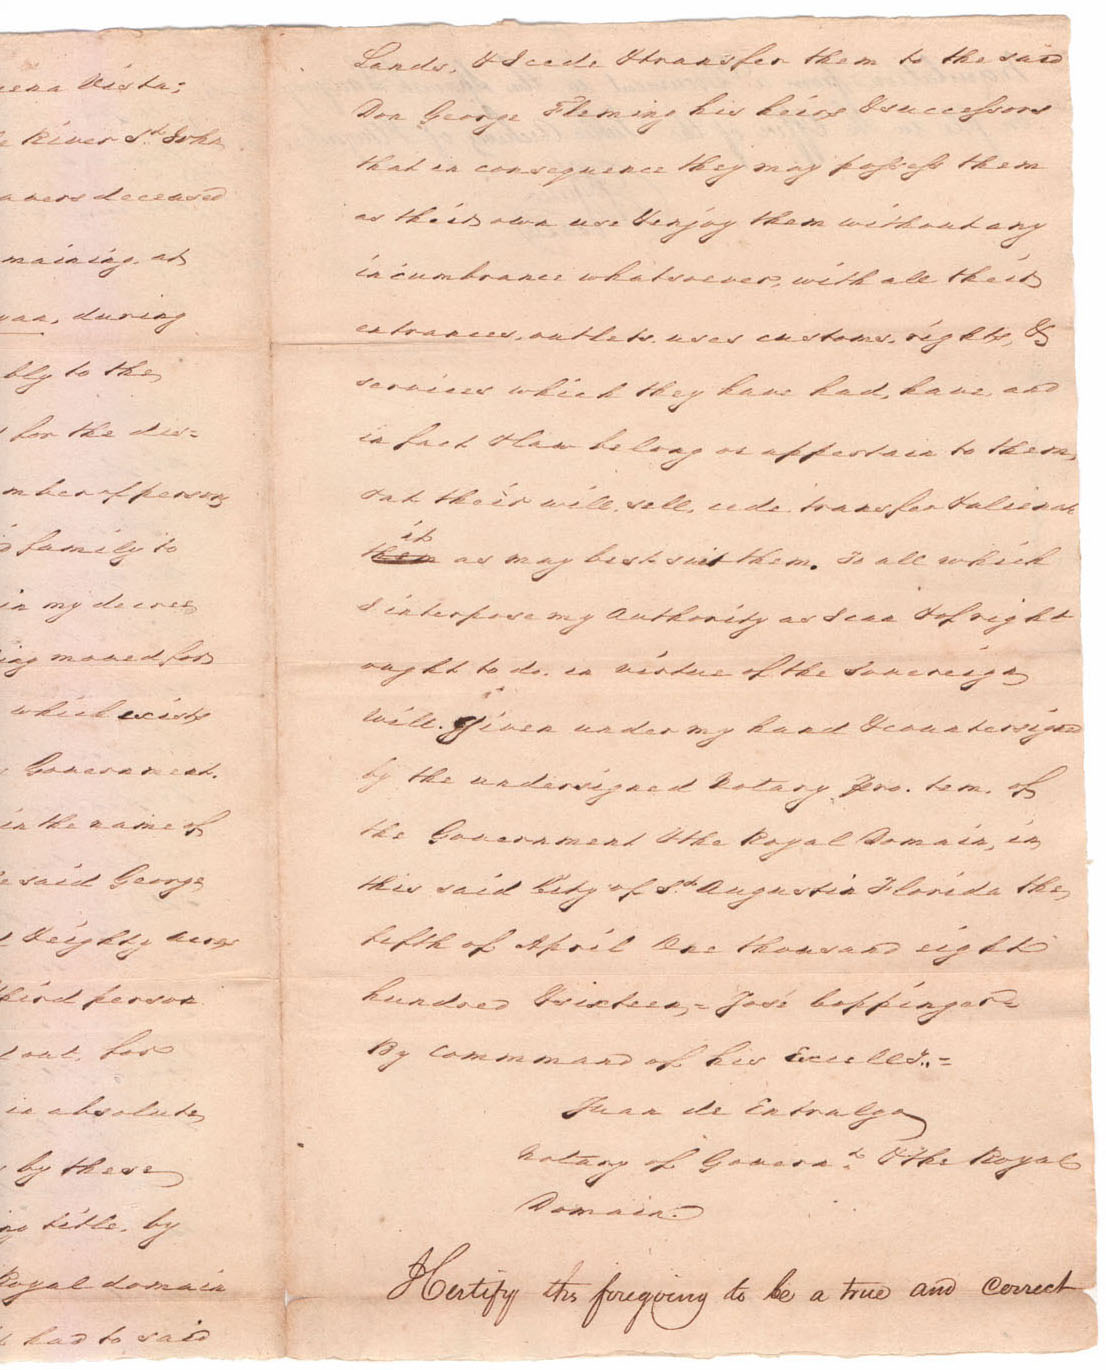 eena Vista;
e River St. John
aners deceased
maining at
yaa, during
bly to the
t for the dis=
mber of persons
d family to
in my decree
ing moved for
which exists
e Government.
in the name of
e said George
t & eighty acres
third person
t out, for
in absolute,
by these
ing title, by
Royal domain
t had to said
Lands, & I cede & transfer them to the said
Don George Fleming his heirs & successors
that in consequence they may possess them
as their own use & enjoy them without any
incumbrance whatsoever, with all their
entrances, outlets, uses customs, rights, &
services which they have had, have, and
in fact & law belong or appertain to them,
& at their will, sell, cede, transfer & alienate
it
them as may best suit them. To all which
I interpose my Authority as I can & of right
ought to do, in virtue of the Sovereign
Will. Given under my hand & countersigned
by the undersigned Notary Pro. tem. of
the Government & the Royal Domain, in
this said City of St. Augustin Florida the
fifth of April One thousand eight
hundred & sixteen,= José Coppinger=
By Commmand of his Excell.y.=
Juan de Entralgo
Notary of Governt. & the Royal
Domain.
I Certify the foregoing to be a true and correct